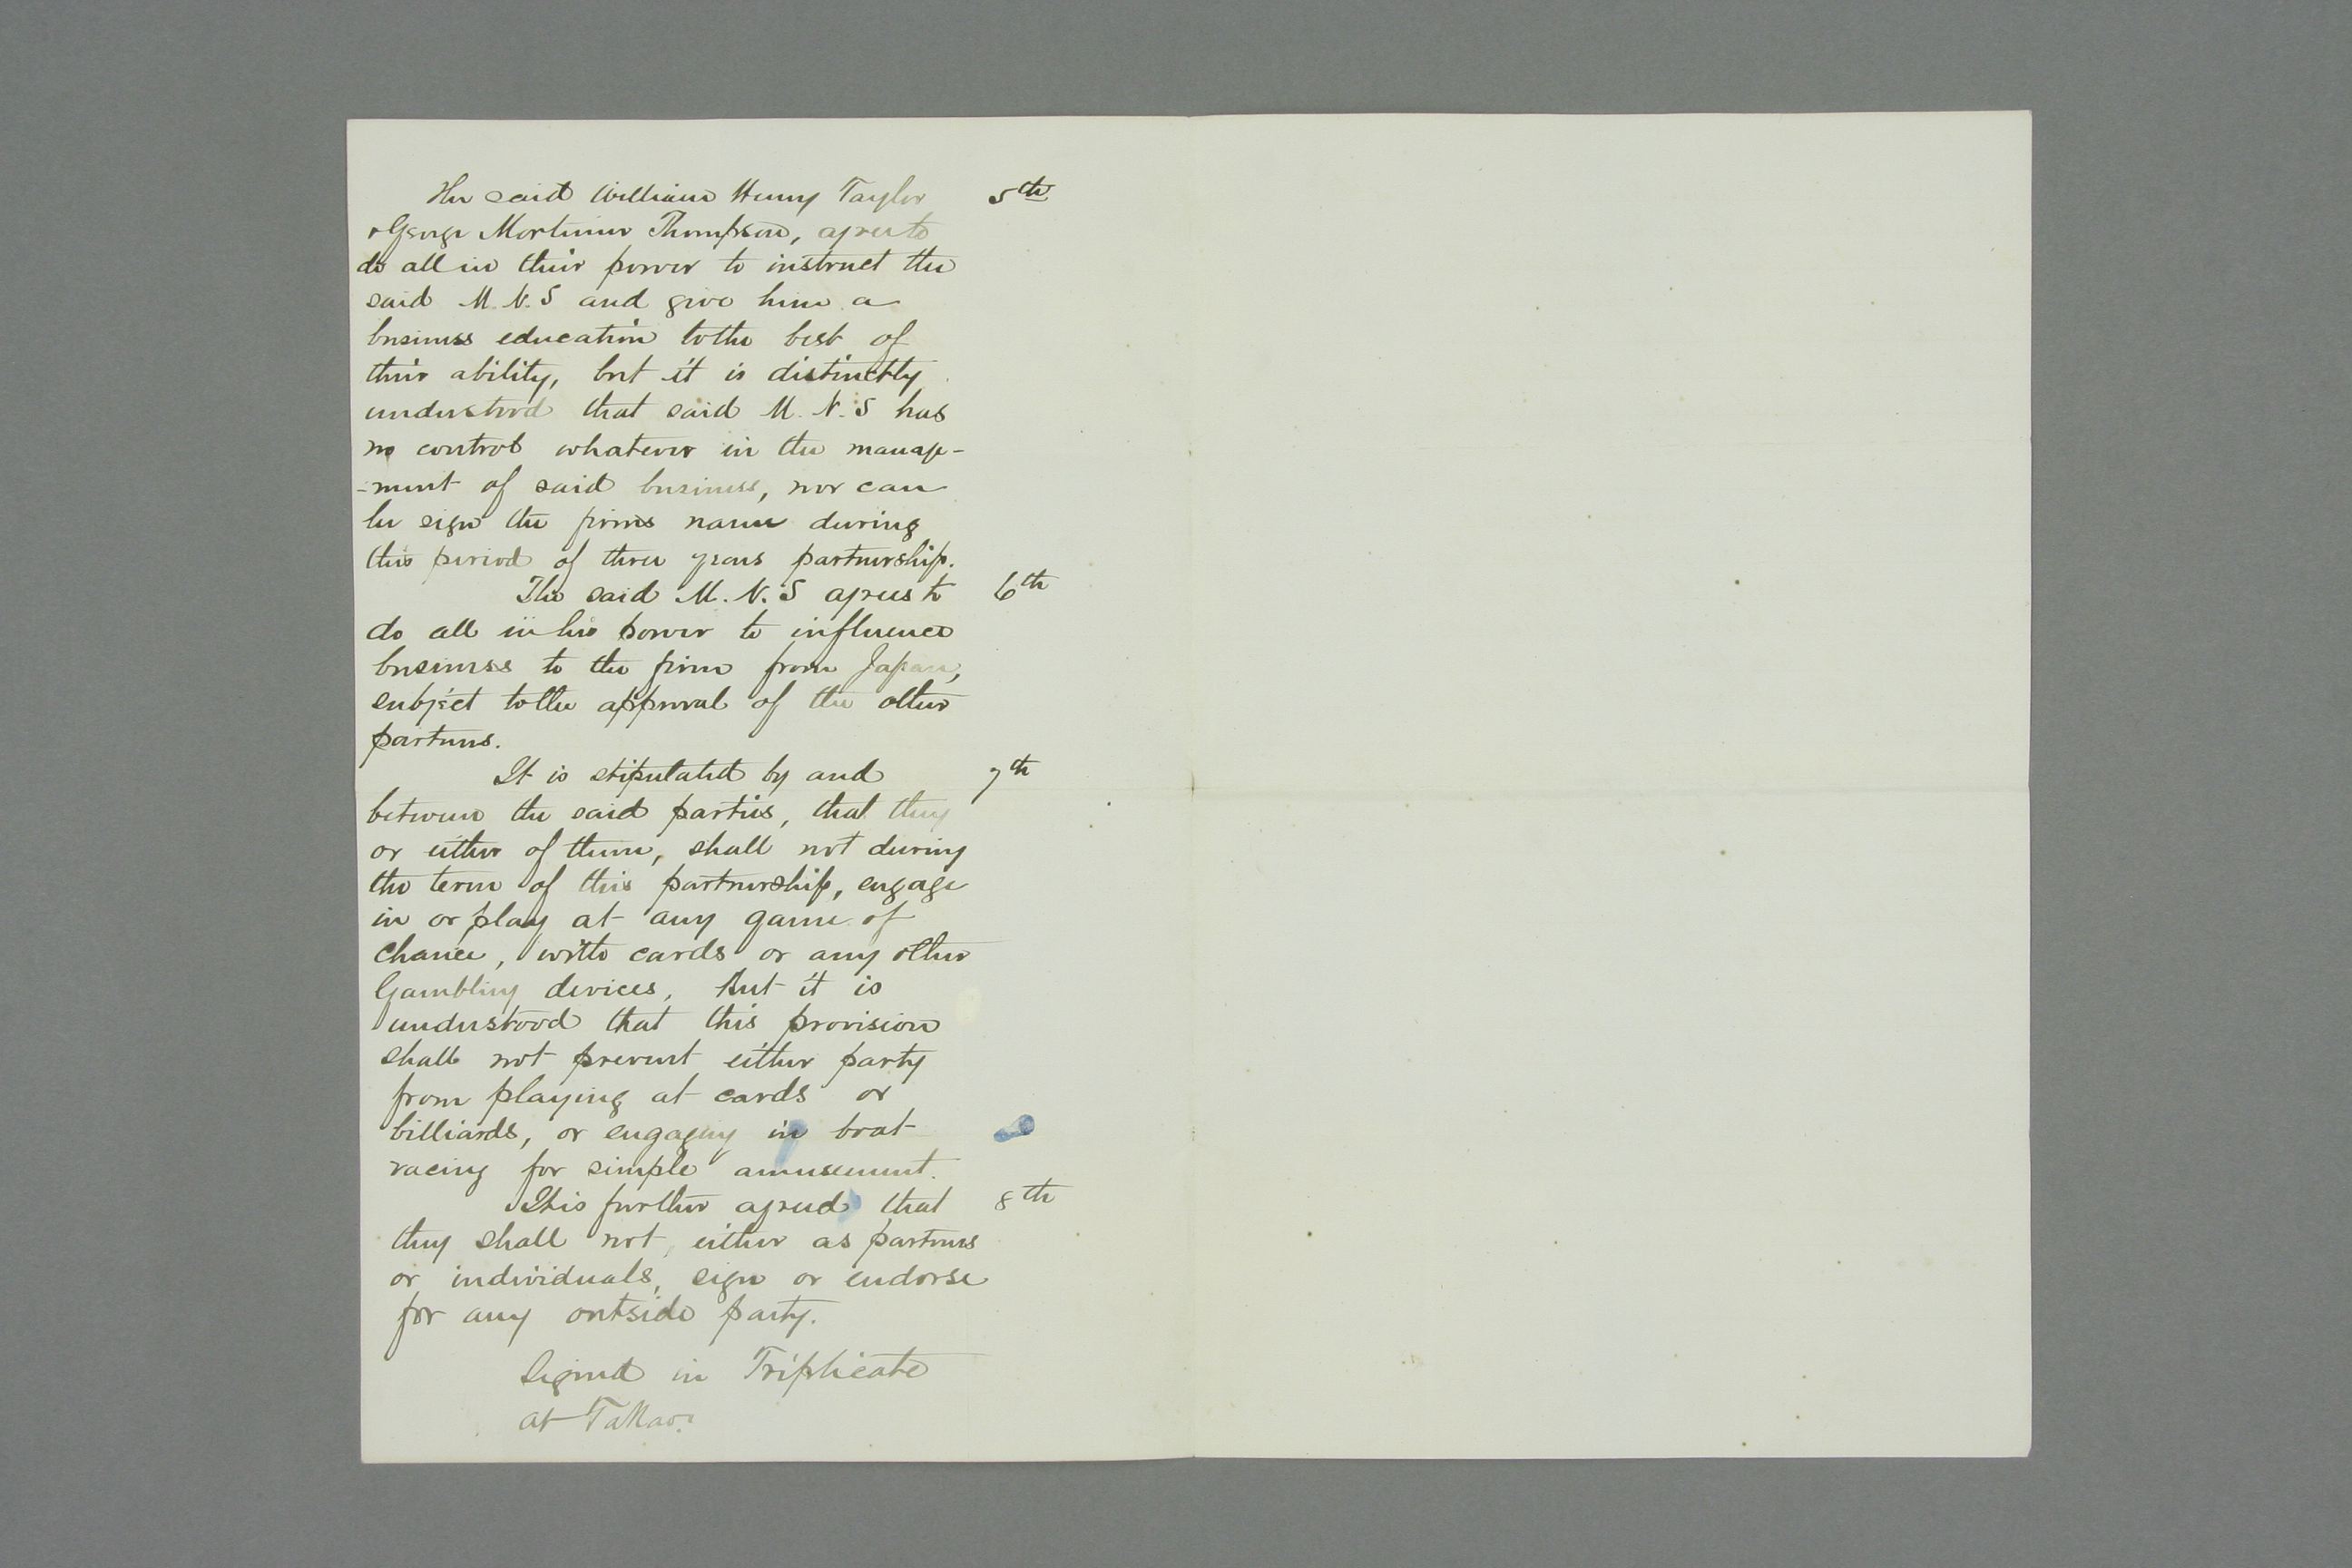 The said William Henry Taylor 5th
& George Mortimer Thompson, agree to
do all in their power to instruct the
said M. N. S and give him a
business education to the best of
their ability, but it is distinctly
understood that said M. N. S has
no control whatever in the manage-
-ment of said business, nor can
he sign the firms name during
this period of three years partnership.
The said M. N. S agrees to 6th
do all in his power to influence
business to the firm from Japan,
subject to the approval of the other
partners.
It is stipulated by and 7th
between the said parties, that they
or either of them, shall not during
the term of this partnership, engage
in or play at any game of
Chance, with cards or any other
Gambling devices, But it is
understood that this provision
shall not prevent either party
from playing at cards or
billiards, or engaging in boat
racing for simple amusement.
It is further agreed that 8th
they shall not, either as partners
or individuals, sign or endorse
for any outside party.
Signed in Triplicate
at